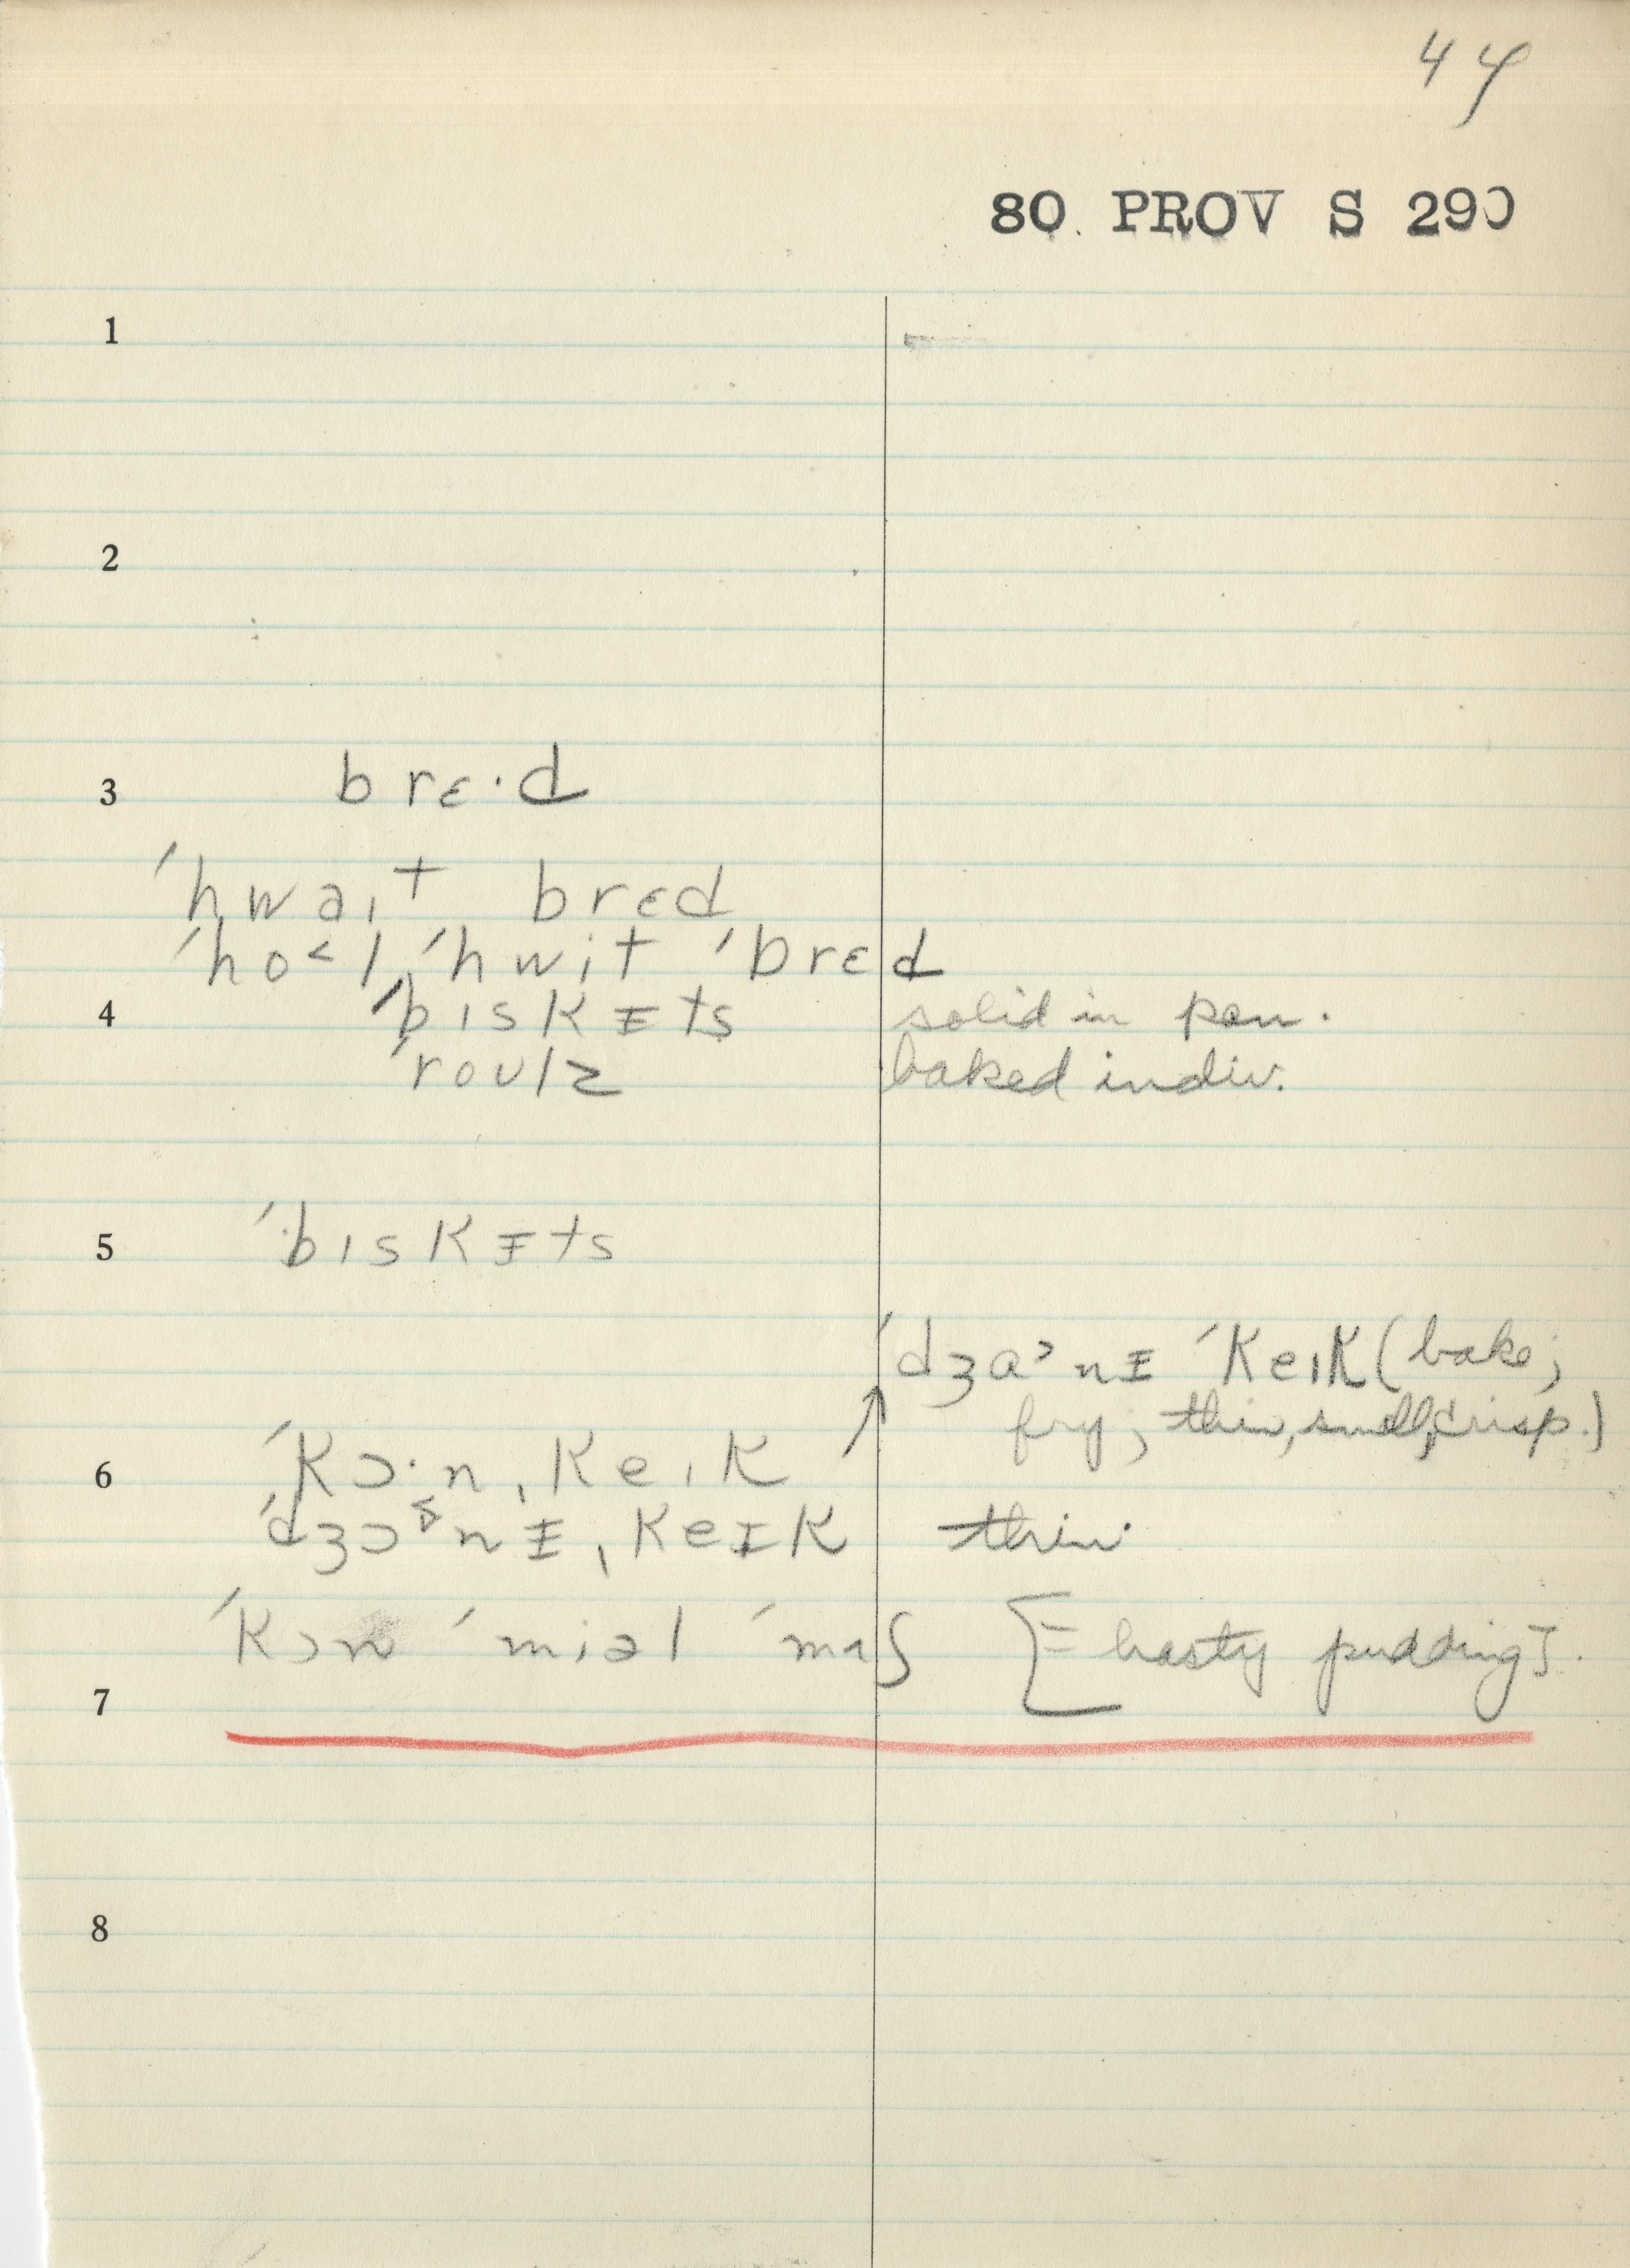 44
80 PROV S 290
1
2
3 brɛ·d
ˈhwaɪt brɛd
ˈho˂l ˈhwit ˈbrɛd
4 ˈbɪskᵻts solid in pan.
ˈroʊlz baked indiv.
5 ˈbɪskᵻts
ˈdʒɑ˃nᵻ ˈkeɪk (bake;
fry; thin, small, crisp.)
6 ˈkɔ·nˌkeɪk ↑
ˈdʒɔnᵻˌkeɪk thin
ˈkɔn ˈmiəl ˈmʌʃ [= hasty pudding].
7
8